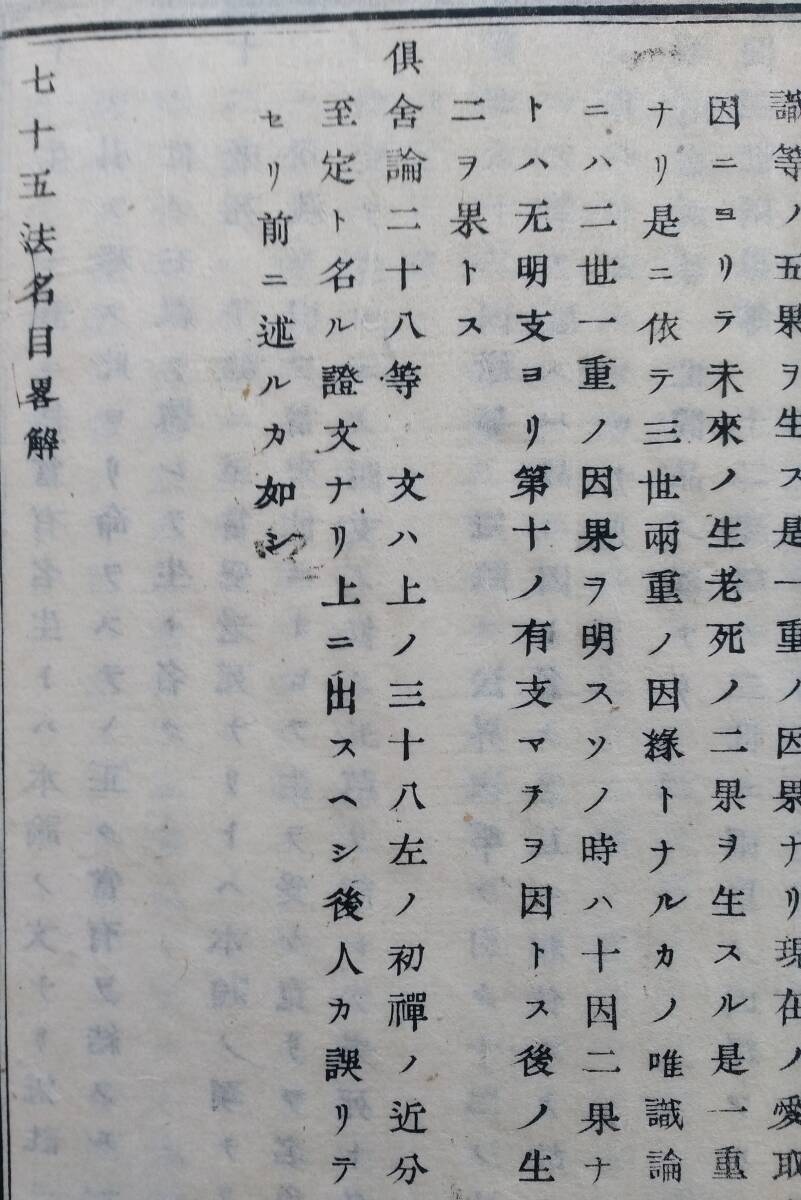 識等ノ五果ヲ生ス是一重ノ因果ナリ現在ノ愛取
因ニヨリテ未來ノ生老死ノ二果ヲ生スル是一重
ナリ是ニ依テ三世兩重ノ因緣トナルカノ唯識論
ニハ二世一重ノ因果ヲ明スソノ時ハ十因二果ナ
トハ无明支ヨリ第十ノ有支マチヲ因トス後ノ生
二ヲ果トス
俱舍論二十八等　文ハ上ノ三十八左ノ初禪ノ近分
至定ト名ル證文ナリ上ニ出スヘシ後人カ誤リテ
セリ前ニ述ルカ如シ
七十五法名目畧解